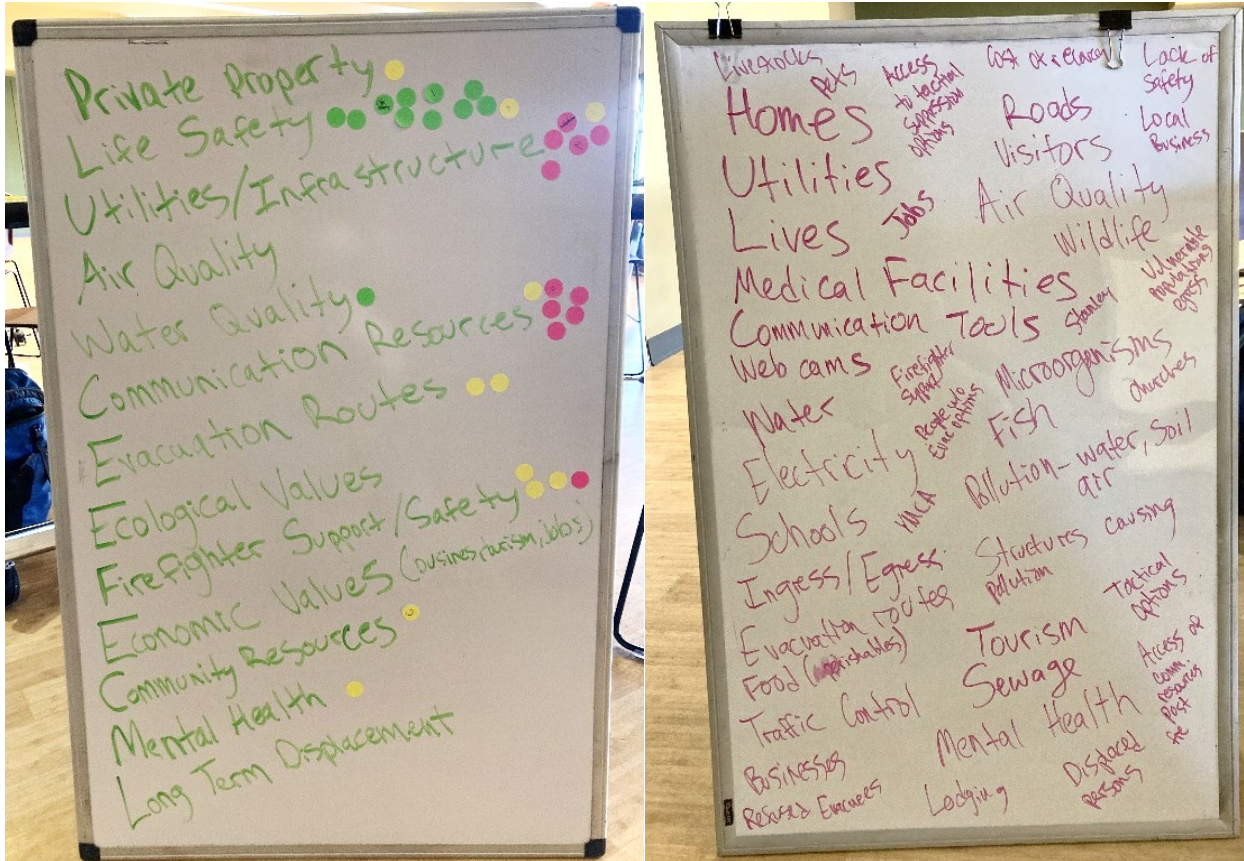 Private Property
Life Safety
Utilities/Infrastructure
Air Quality
Water Quality
Communication Resources
Evacuation Routes
Ecological Values
Firefighter Support/Safety
Economic Values (busines, tourism, jobs)
Community Resources
Mental Health
Long Term Displacement
Livestocks
Pets
Access
to tactical
suppression
options
Cost of recovery
Lack of
Safety
Homes
Roads
Local
Business
Visitors
Utilities
Jobs
Air Quality
Lives
Wildlife
Vulnerable
populations
egress
Medical Facilities
Stanley
Communication Tools
Web cams
Firefighter
Support
Microorganisms
Churches
Water
People w/o
Evac options
Fish
Electricity
Pollution - water, soil
air
Schools
YMCA
Structures causing
pollution
Ingress/Egress
Tactical
options
Evacuation routes
Food
Tourism
Access of
comm.
resources
post
fire
Sewage
Traffic Control
Mental Health
Businesses
Displaced
persons
Refused Evacuees
Lodging